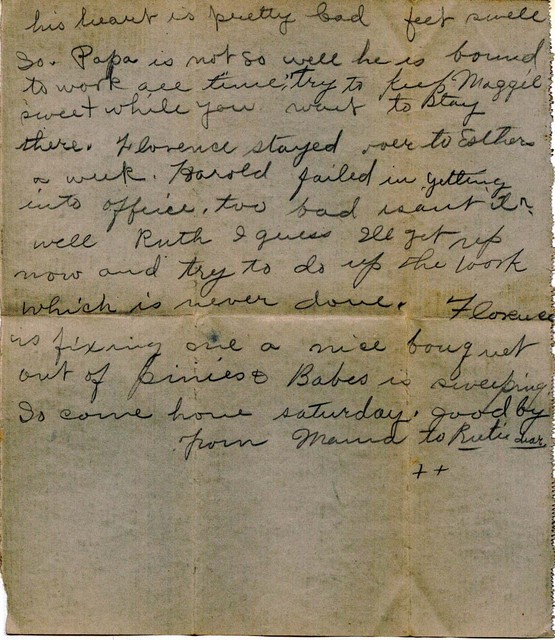 his heart is pretty bad feet swell
So. Papa is not so well he is bound
to work all time, try to keep Maggie
sweet while you want to stay
there. Florence stayed over to Esthers
a week. Harold failed in getting
into office. too bad isant it.
well Ruth I guess Ill get up
now and try to do up the work
which is never done. Florence
is fixing me a nice bouquet
out of pinies & Babes is sweeping.
Do come home saturday. good by
from Mama to Rutie dear
++